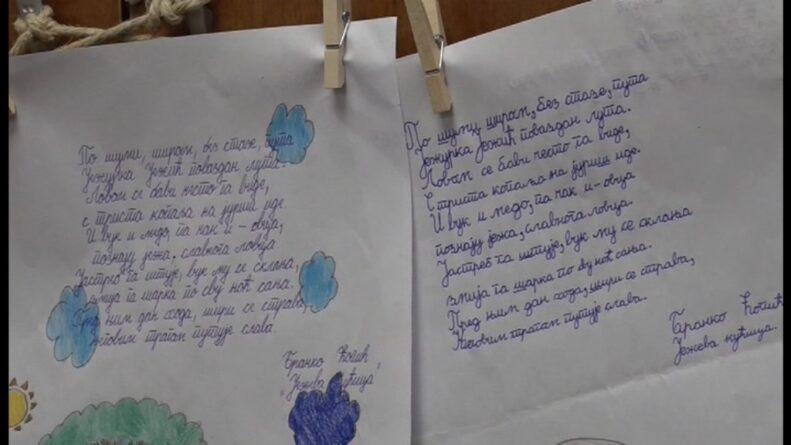 По шуми, широм, без стазе, пута
Јежурка Јежић поваздан лута.
Ловом се бави често га виде,
с триста копаља на јуриш иде.
И вук и медо, па чак и - овца,
познају јежа, славнога ловца
Јастреб га штује, вук му се склања,
змија га шарка по сву ноћ сања.
Пред њим дан хода, шири се страва,
његовим трагом путује слава.
Бранко Ћопић
"Јежева кућица"
По шуми, широм, без стазе, пута
Јежурка Јежић поваздан лута.
Ловом се бави често га виде,
С триста копаља на јуриш иде.
И вук и медо, па чак и - овца
познају јежа, славнога ловца.
Јастреб га штује, вук му се склања
змија га шарка по сву ноћ сања.
Пред њим дан хода, шири се страва,
Његовим трагом путује слава.
Бранко Ћопић
Јежева кућица.